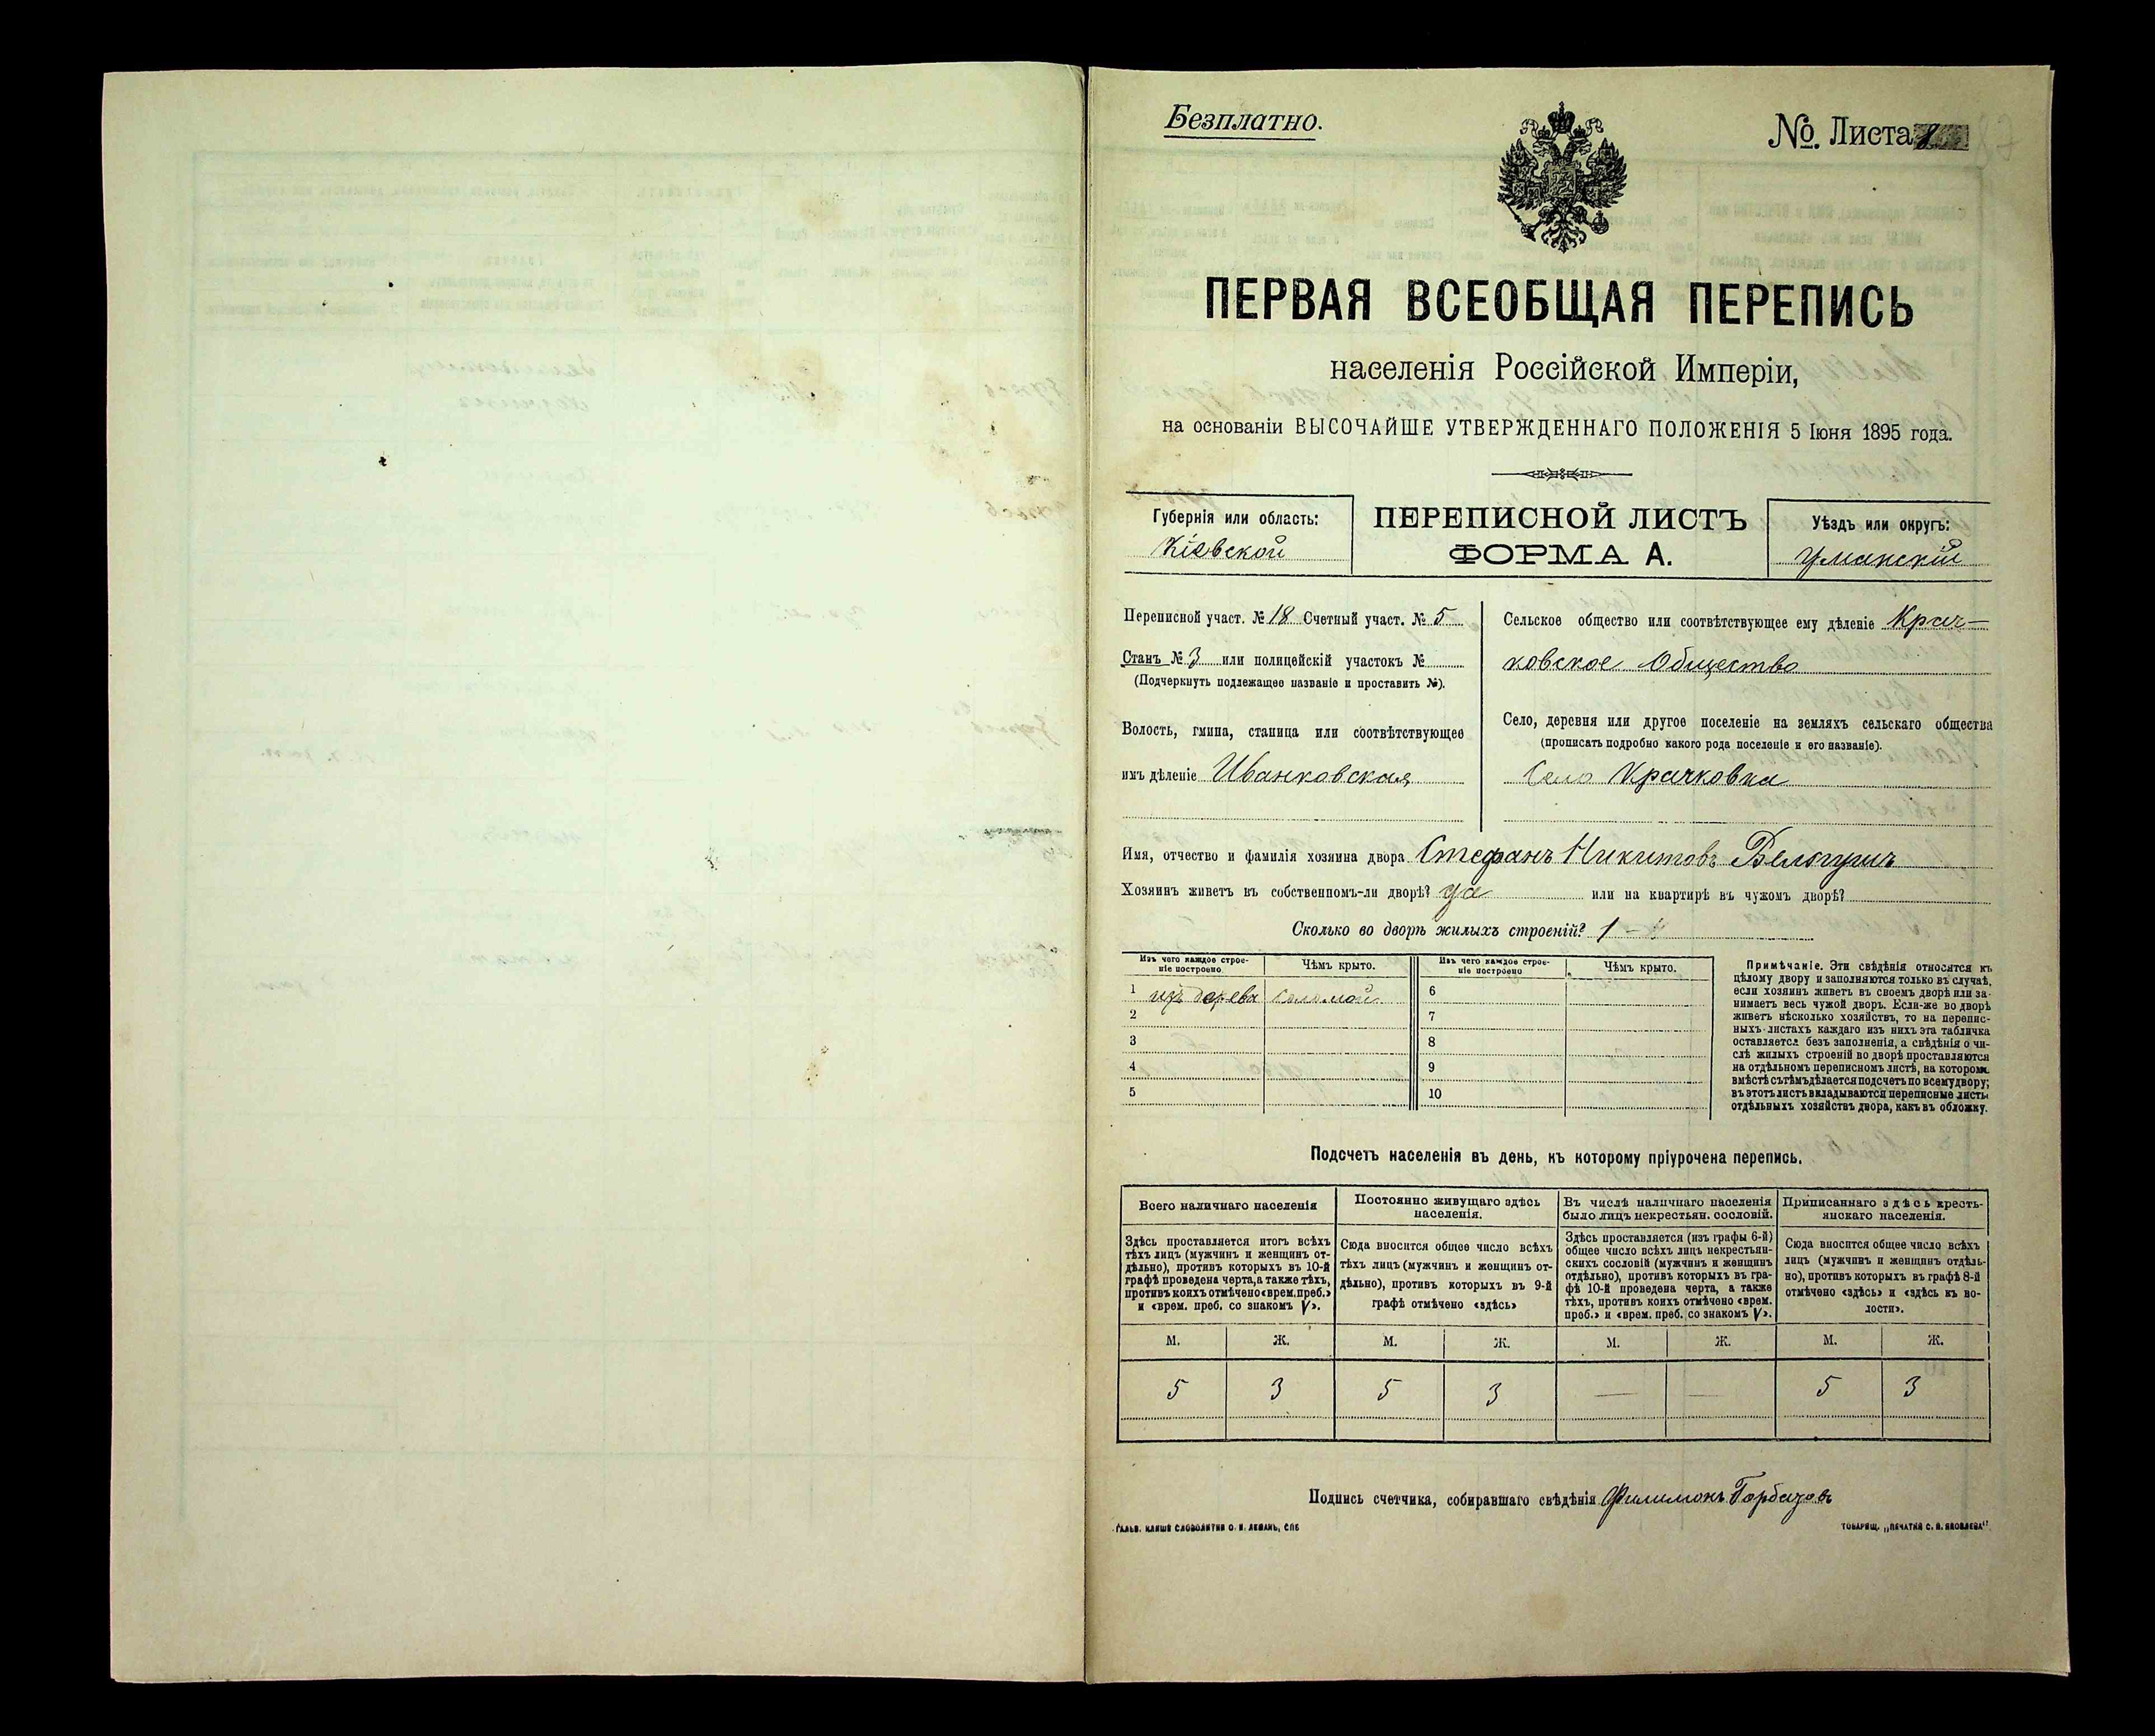 Безплатно.
№ Листа 8
ПЕРВАЯ ВСЕОБЩАЯ ПЕРЕПИСЬ
населенія Россійской Имперіи,
на основаніи ВЫСОЧАЙШЕ УТВЕРЖДЕННАГО ПОЛОЖЕНІЯ 5 Іюня 1895 года.
Губернія или область:
Кіевской
ПЕРЕПИСНОЙ ЛИСТЪ
ФОРМА А.
Уѣздъ или округъ:
Уманскій
Переписной участ. № 18 Счетный участ. № 5
Станъ № 3 или полицейскій участокъ №
(Подчеркнуть подлежащее названіе и проставить №).
Волость, гмина, станица или соотвѣтствующее
имъ дѣленіе Иванковская
Сельское общество или соотвѣтствующее ему дѣленіе Крач-
ковское Общество
Село, деревня или другое поселеніе на земляхъ сельскаго общества
(прописать подробно какого рода поселеніе и его названіе).
Село Крачковка
Имя, отчество и фамилія хозяина двора Стефанъ Никитовъ
Хозяинъ живетъ въ собственномъ-ли дворѣ? да или на квартирѣ въ чужомъ дворѣ?
Сколько во дворѣ жилыхъ строеній? 1
Изъ чего каждое строе-
ніе построено.
Чѣмъ крыто.
Изъ чего каждое строе-
ніе построено
Чѣмъ крыто.
1 изъ дерева соломой
2
3
4
5
6
7
8
9
10
Примѣчаніе. Эти свѣдѣнія относятся къ
цѣлому двору и заполняются только въ случаѣ,
если хозяинъ живетъ въ своемъ дворѣ или за-
нимаетъ весь чужой дворъ. Если-же во дворѣ
живетъ нѣсколько хозяйствъ, то на перепис-
ныхъ листахъ каждаго изъ нихъ эта табличка
оставляется безъ заполненія, а свѣдѣнія о чи-
слѣ жилыхъ строеній во дворѣ проставляются
на отдѣльномъ переписномъ листѣ, на которомъ
вмѣстѣ съ тѣмъ дѣлается подсчетъ по всему двору;
въ этотъ листъ вкладываются переписные листы
отдѣльныхъ хозяйствъ двора, какъ въ обложку.
Подсчетъ населенія въ день, къ которому пріурочена перепись.
Всего наличнаго населенія
Здѣсь проставляется итогъ всѣхъ
тѣхъ лицъ (мужчинъ и женщинъ от-
дѣльно), противъ которыхъ въ 10-й
графѣ проведена черта, а также тѣхъ,
противъ коихъ отмѣчено «врем. преб.»
и «врем. преб. со знакомъ V».
Постоянно живущаго здѣсь
населенія.
Сюда вносится общее число всѣхъ
тѣхъ лицъ (мужчинъ и женщинъ от-
дѣльно), противъ которыхъ въ 9-й
графѣ отмѣчено «здѣсь»
Въ числѣ наличнаго населенія
было лицъ некрестьян. сословій.
Здѣсь проставляется (изъ графы 6-й)
общее число всѣхъ лицъ некрестьян-
скихъ сословій (мужчинъ и женщинъ
отдѣльно), противъ которыхъ въ гра-
фѣ 10-й проведена черта, а также
тѣхъ, противъ коихъ отмѣчено «врем.
преб.» и «врем. преб. со знакомъ V».
Приписаннаго здѣсь кресть-
янскаго населенія.
Сюда вносится общее число всѣхъ
лицъ (мужчинъ и женщинъ отдѣль-
но), противъ которыхъ въ графѣ 8-й
отмѣчено «здѣсь» и «здѣсь къ во-
лости».
М. Ж. М. Ж. М. Ж. М. Ж.
5 3 5 3 — — 5 3
Подпись счетчика, собиравшаго свѣдѣнія Филимонъ
ГАЛЬВ. КЛИШЕ СЛОВОЛИТНИ О. И. ЛЕМАНЪ, СПБ
ТОВАРИЩ. „ПЕЧАТНЯ С. П. ЯКОВЛЕВА“.